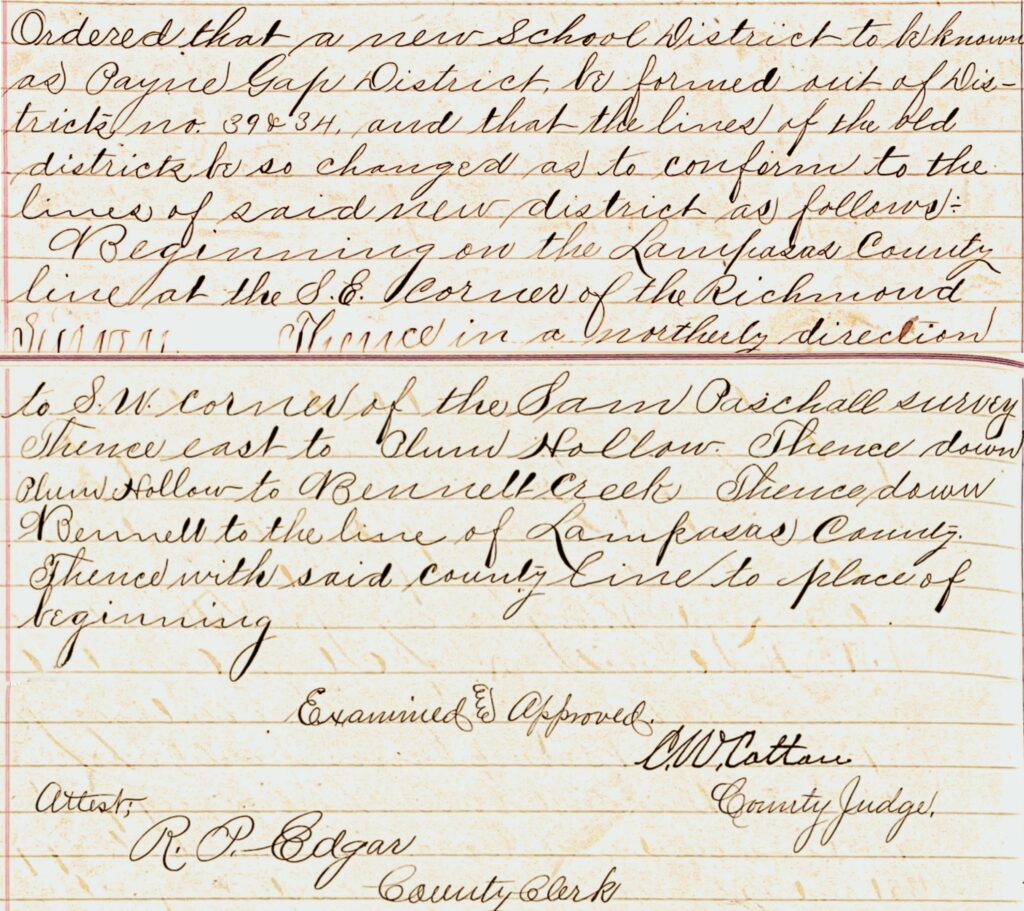 Ordered that a new School District to be known
as Payne Gap District, be formed out of Dis-
tricts no. 39 & 34, and that the lines of the old
districts be so changed as to conform to the
lines of said new district as follows:
Beginning on the Lampasas County
line at the S.E. Corner of the Richmond
Thence in a northerly direction
to S.W. corner of the Sam Paschall survey
Thence east to Plum Hollow. Thence down
Plum Hollow to Bennett Creek Thence down
Bennett to the line of Lampasas County.
Thence with said county line to place of
beginning
Examined & Approved.
C.W. Cotton
County Judge.
Attest;
R. P. Edgar
County Clerk